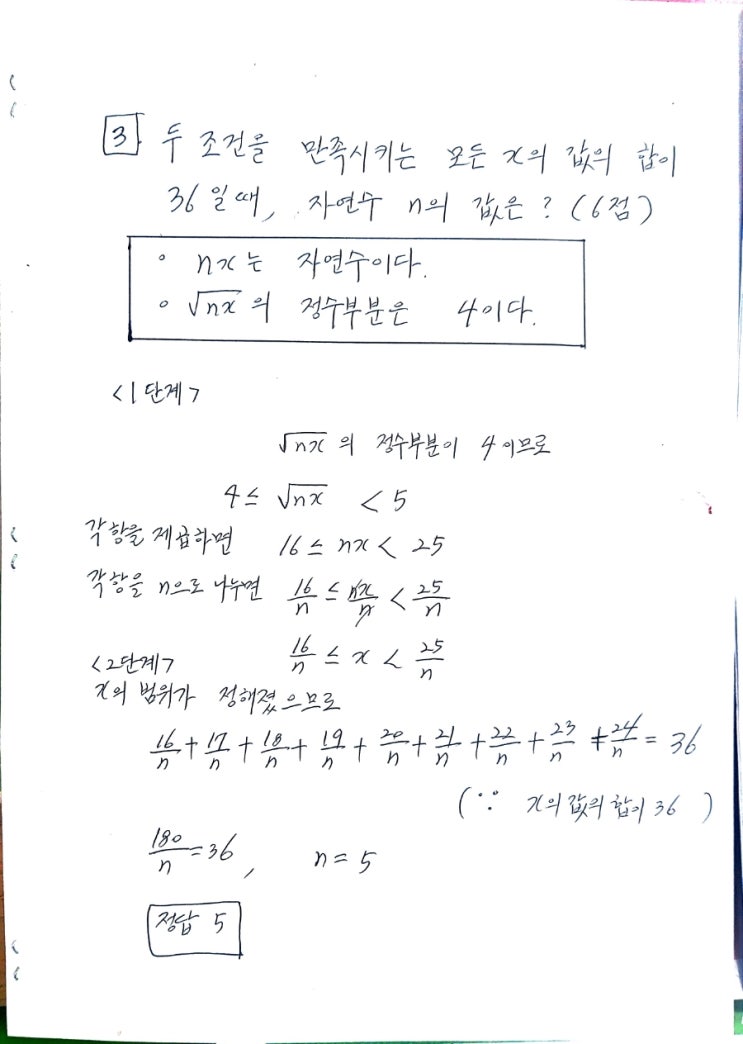 3 두 조건을 만족시키는 모든 x의 값의 합이
36일때, 자연수 n의 값은? (6점)
◦ nx는 자연수이다.
◦ √nx의 정수부분은 4이다.
<1단계>
√nx의 정수부분이 4이므로
4 ≤ √nx < 5
각항을 제곱하면 16 ≤ nx < 25
각항을 n으로 나누면 16/n ≤ nx/n < 25/n
16/n ≤ x < 25/n
<2단계>
x의 범위가 정해졌으므로
16/n + 17/n + 18/n + 19/n + 20/n + 21/n + 22/n + 23/n + 24/n = 36
(∵ x의 값의 합이 36)
180/n = 36, n = 5
정답 5